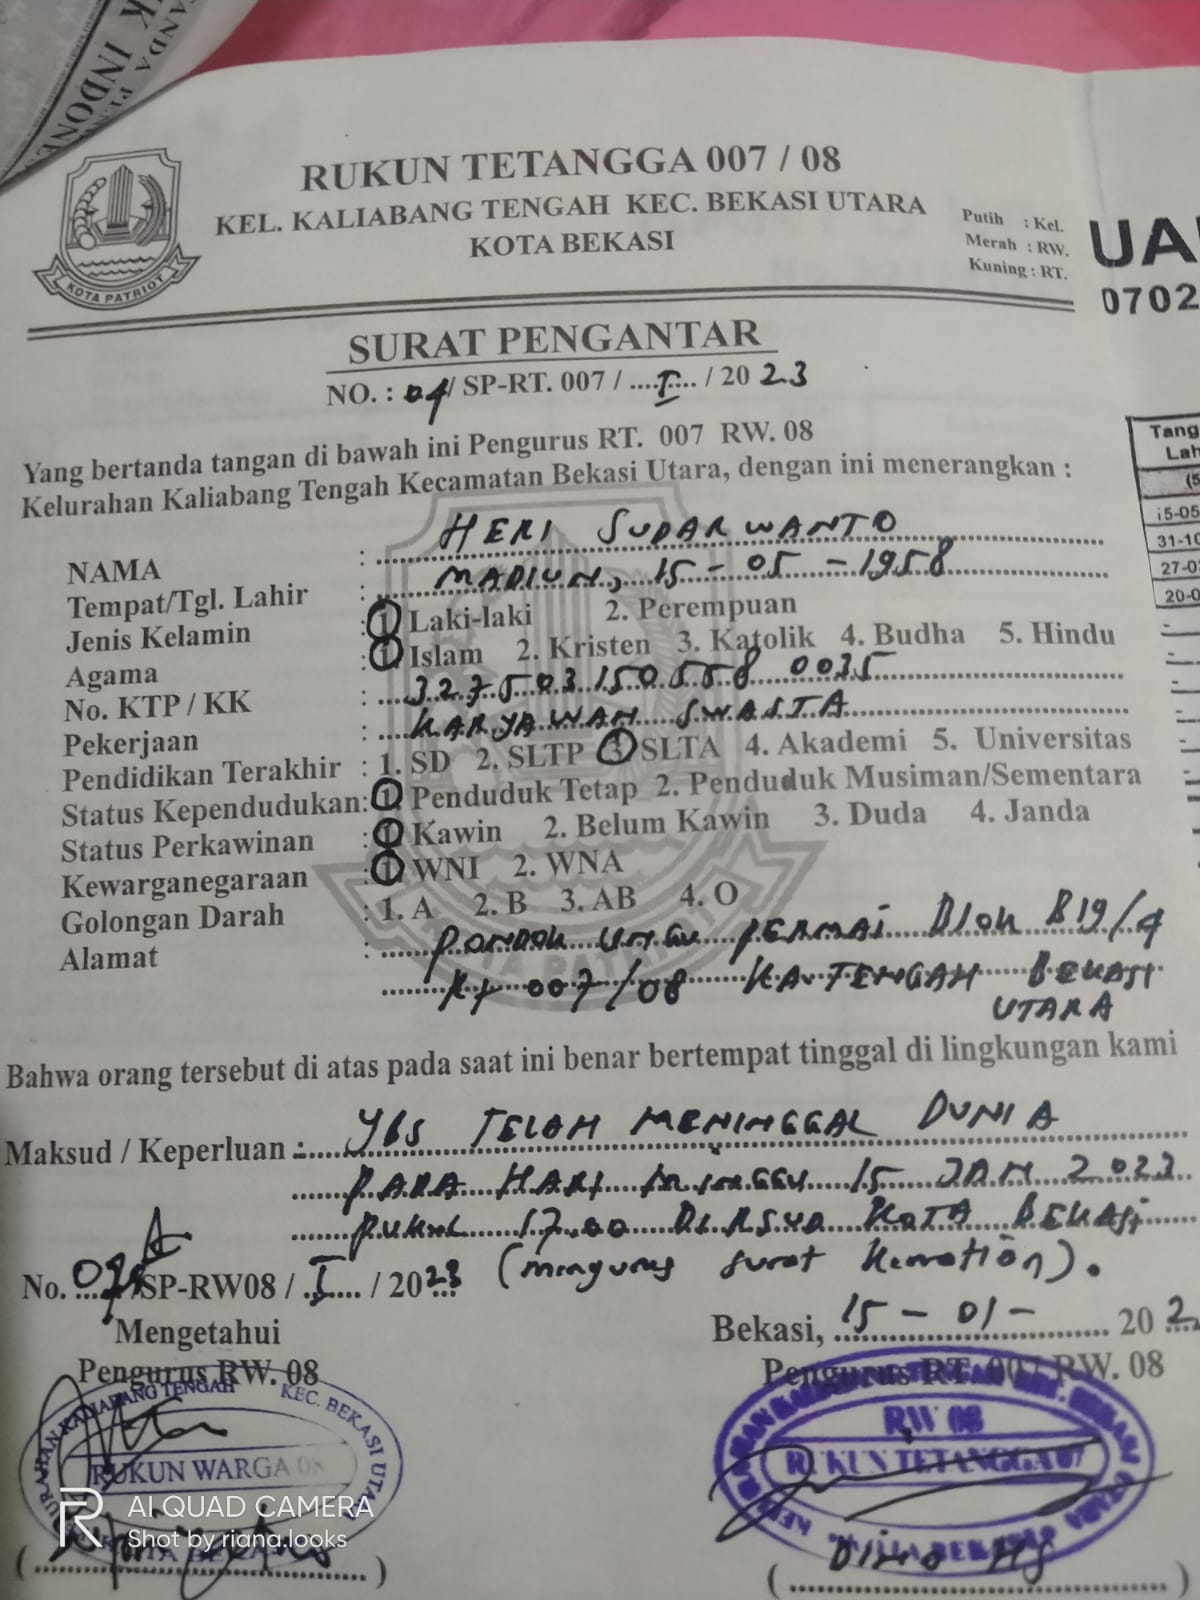 ANDA PE
K INDONE
RUKUN TETANGGA 007 / 08
KEL. KALIABANG TENGAH KEC. BEKASI UTARA
KOTA BEKASI
KOTA PATRIOT
Putih : Kel.
Merah : RW.
Kuning : RT.
UA
0702
SURAT PENGANTAR
NO. : 04/ SP-RT. 007 / ....I.... / 20 23
Yang bertanda tangan di bawah ini Pengurus RT. 007 RW. 08
Kelurahan Kaliabang Tengah Kecamatan Bekasi Utara, dengan ini menerangkan :
Tang
Lah
(5
15-05
31-10
27-0
20-0
NAMA : HERI SUDARWANTO
Tempat/Tgl. Lahir : MADIUN, 15 - 05 - 1958
Jenis Kelamin : 1. Laki-laki 2. Perempuan
Agama : 1. Islam 2. Kristen 3. Katolik 4. Budha 5. Hindu
No. KTP / KK : 327503150558 0035
Pekerjaan : KARYAWAN SWASTA
Pendidikan Terakhir : 1. SD 2. SLTP 3 SLTA 4. Akademi 5. Universitas
Status Kependudukan: 1. Penduduk Tetap 2. Penduduk Musiman/Sementara
Status Perkawinan : 1 Kawin 2. Belum Kawin 3. Duda 4. Janda
Kewarganegaraan : 1. WNI 2. WNA
Golongan Darah : 1. A 2. B 3. AB 4. O
Alamat : PONDOK UNGU PERMAI Blok B19/4
RT 007/08 KA. TENGAH BEKASI
UTARA
Bahwa orang tersebut di atas pada saat ini benar bertempat tinggal di lingkungan kami
Maksud / Keperluan : YBS TELAH MENINGGAL DUNIA
PADA HARI MINGGU 15 JAN 2023
PUKUL 17.00 DI RSUD KOTA BEKASI
(mengurus surat Kematian).
No. /SP-RW08 / I / 2023
Mengetahui
Pengurus RW. 08
Bekasi, 15 - 01 - 202
Pengurus RT. 007 RW. 08
KALIABANG TENGAH KEC. BEKASI UTARA
RUKUN WARGA 08
KOTA BEKASI
RW 08
RUKUN TETANGGA 07
AI QUAD CAMERA
Shot by riana.looks